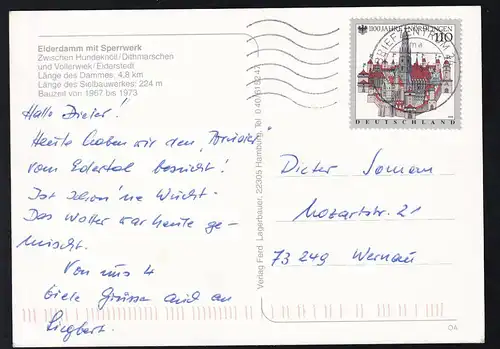 Eiderdamm mit Sperrwerk
Zwischen Hundeknöll/Dithmarschen
und Vollerwiek/Eiderstedt
Länge des Dammes: 4,8 km
Länge des Sielbauwerkes: 224 m
Bauzeit von 1967 bis 1973
Hallo Dieter!
Heute haben wir den
vom Edertal besucht!
Ist schon 'ne Wucht.
Das Wetter war heute ge-
mischt.
Von uns 4
viele Grüsse auch an
Siegbert.
Verlag Ferd. Lagerbauer, 22305 Hamburg, Tel. 0 40/
1100 JAHRE NÖRDLINGEN
110
BRIEFZENTRUM
DEUTSCHLAND
Dieter
Mozartstr. 21
73249 Wernau
04